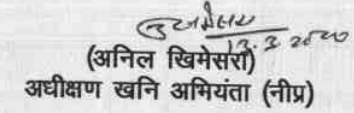 13.3.2020
(अनिल खिमेसरा)
अधीक्षण खनि अभियंता (नीप्र)